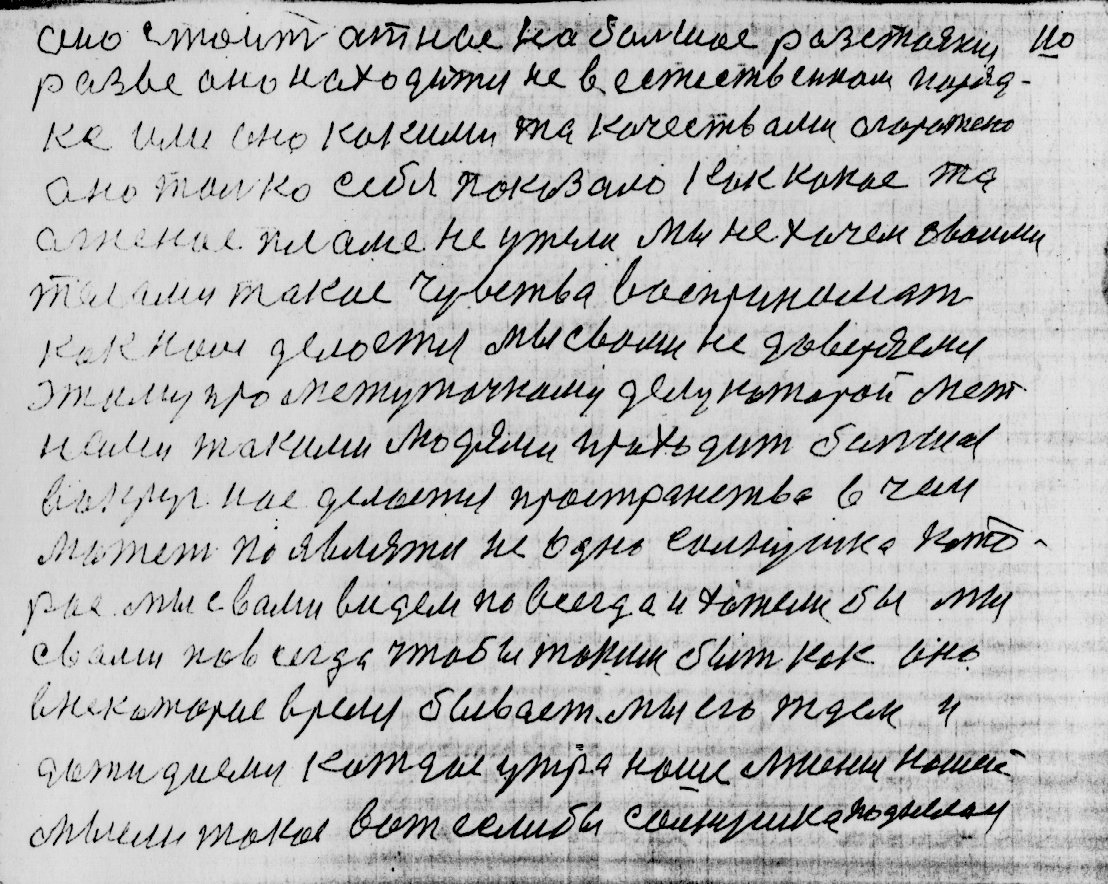 оно стоит атнас на балшое разстаянии но
разве оно находитця не в естественном поряд-
ке или оно какими та качествами агорожено
оно толко себя показало как какое та
агненое пламе не ужели мы не хочем своими
телами такое чувства воспринемат
как нам делоетця мы свами не доверяем
этиму промежуточному делу каторой меж
неми такими людями праходит
вокруг нас делоетця пространства в чем
может появлятця не одно солнушка като-
рае мы свами видем повсегда и хотели бы мы
свами повсегда чтобы таким быт как оно
в некаторае время бывает мы его ждем и
дажидаеми каждае утра наше мнения нашей
мысли такое вот если бы солнушка